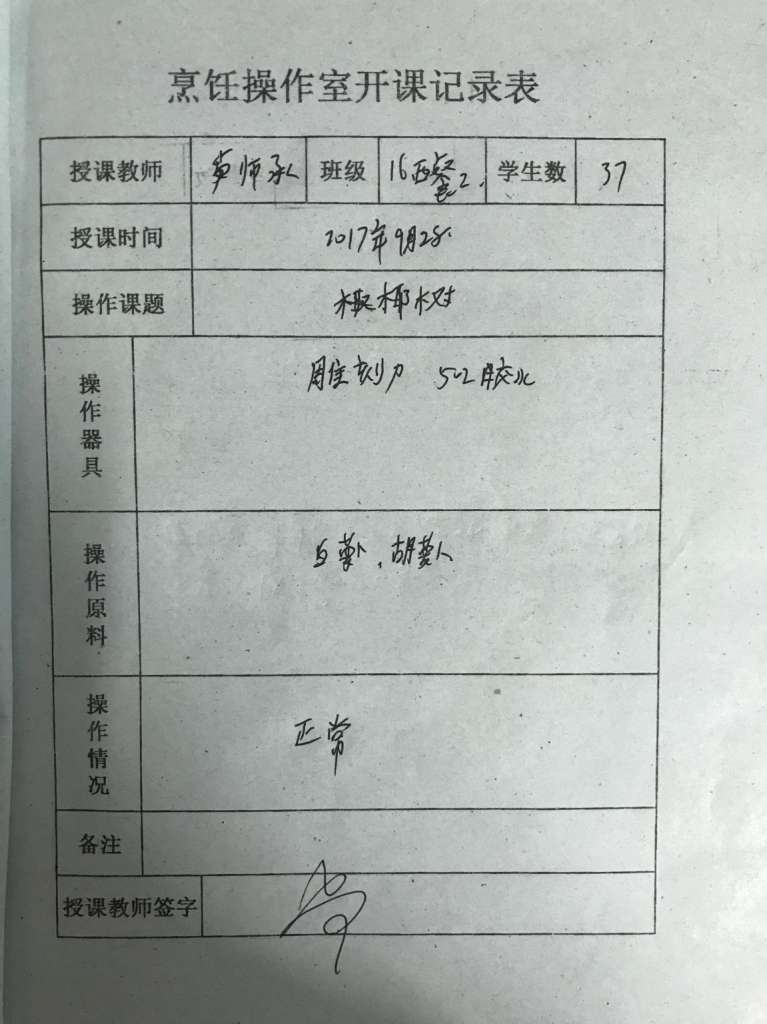 烹饪操作室开课记录表
授课教师 师承 班级 16西餐2. 学生数 37
授课时间 2017年9月28.
操作课题 椰树
操作器具 雕刻刀 502胶水
操作原料 白萝卜、胡萝卜
操作情况 正常
备注
授课教师签字